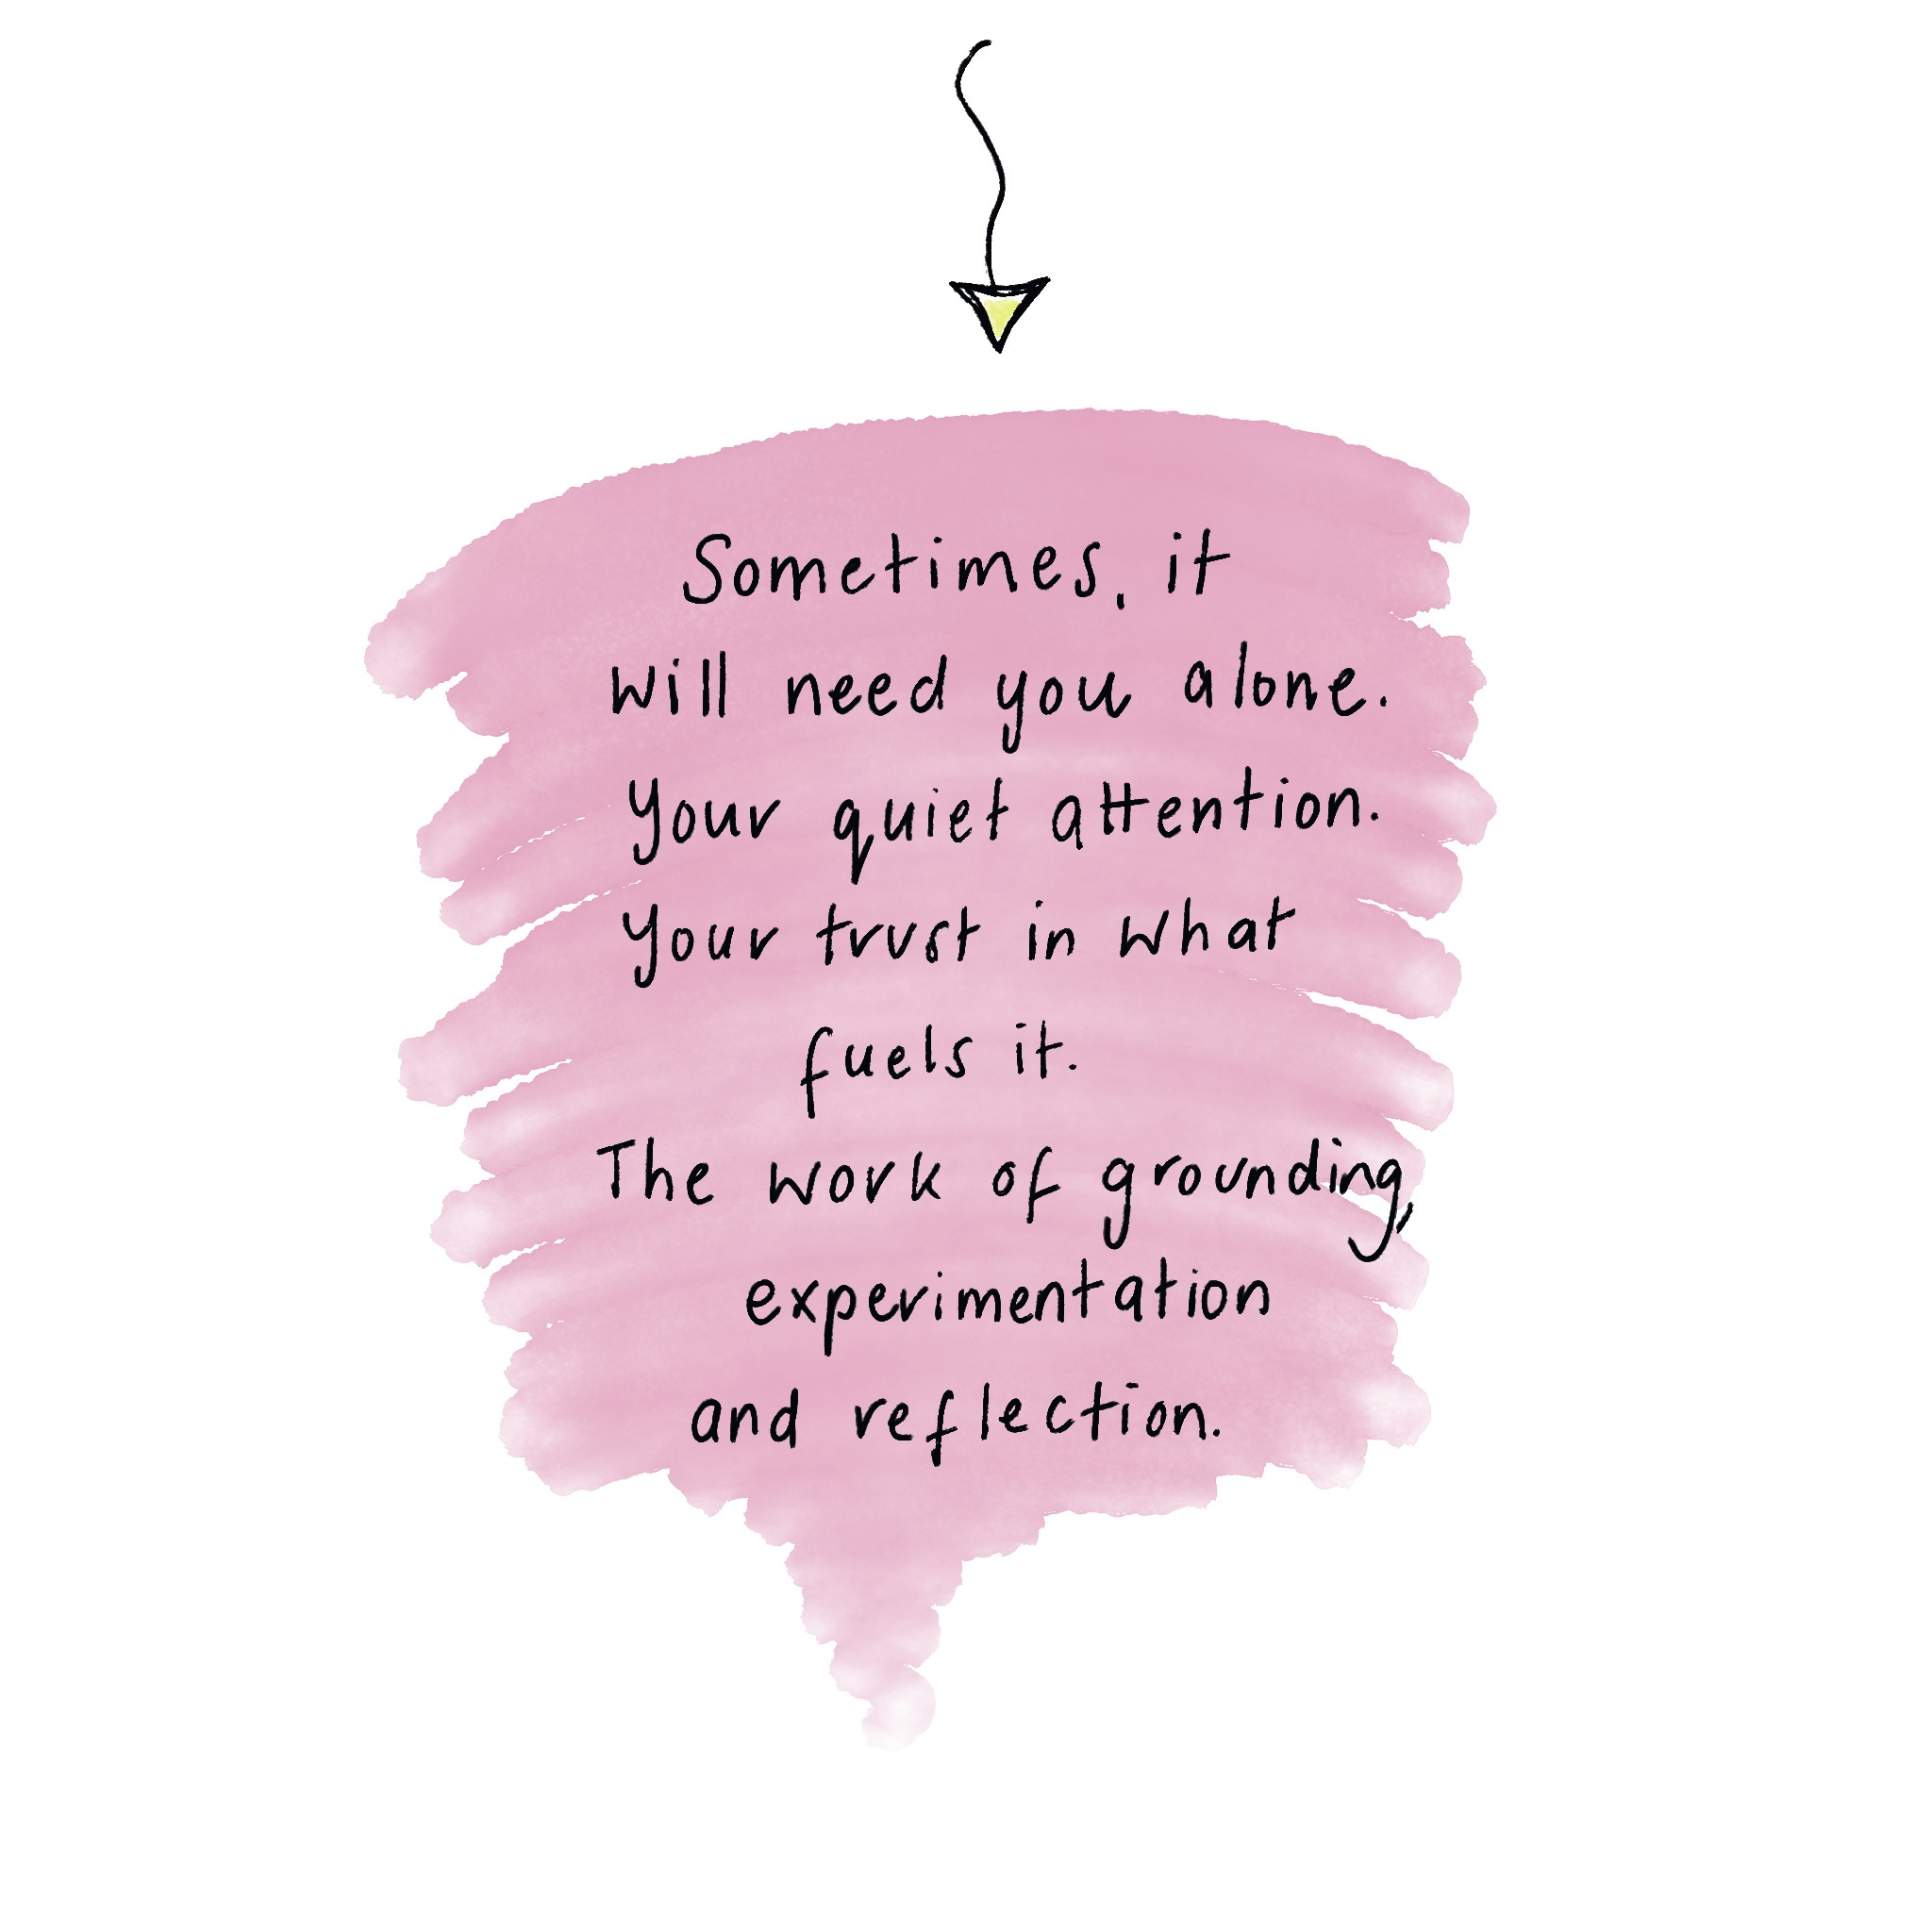 Sometimes, it
will need you alone.
Your quiet attention.
Your trust in what
fuels it.
The work of grounding,
experimentation
and reflection.